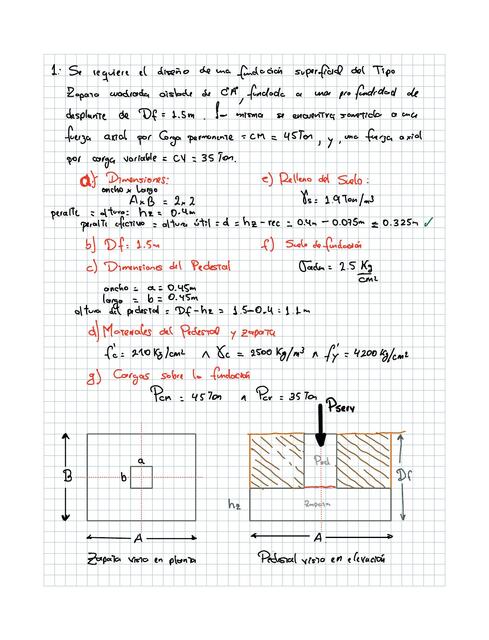 1: Se requiere el diseño de una fundación superficial del Tipo
Zapata cuadrada aislada de CA, fundada a una profundidad de
desplante de Df = 1.5m. misma se encuentra sometida a una
fuerza axial por Carga permanente = CM = 45Ton, y, una fuerza axial
por carga variable = CV = 35 Ton.
a) Dimensiones: e) Relleno del Suelo:
ancho x largo
A x B = 2 x 2 γs = 1.9 Ton/m3
peralte = altura = hz = 0.4m
peralte efectivo = altura útil = d = hz - rec = 0.4m - 0.075m = 0.325m ✓
b) Df = 1.5m f) Suelo de fundación
c) Dimensiones del Pedestal σadm = 2.5 Kg/cm2
ancho = a = 0.45m
largo = b = 0.45m
altura del pedestal = Df - hz = 1.5 - 0.4 = 1.1m
d) Materiales del Pedestal y zapata
f'c = 210 Kg/cm2 ∧ γc = 2500 Kg/m3 ∧ f'y = 4200 Kg/cm2
g) Cargas sobre la fundación
Pcm = 45 Ton ∧ Pcv = 35 Ton
Pserv
a
B b Ped Df
hz Zapata
A A
Zapata vista en planta Pedestal vista en elevación